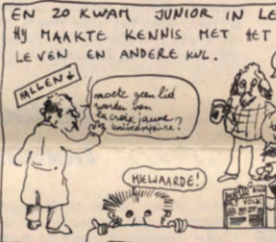 EN ZO KWAM JUNIOR IN LE
HY MAAKTE KENNIS MET HET
LEVEN EN ANDERE KUL.
HALLEN
moete geen lid
worden van
la croix jaune
universitaire?
MIEWAARDE!
VOLK